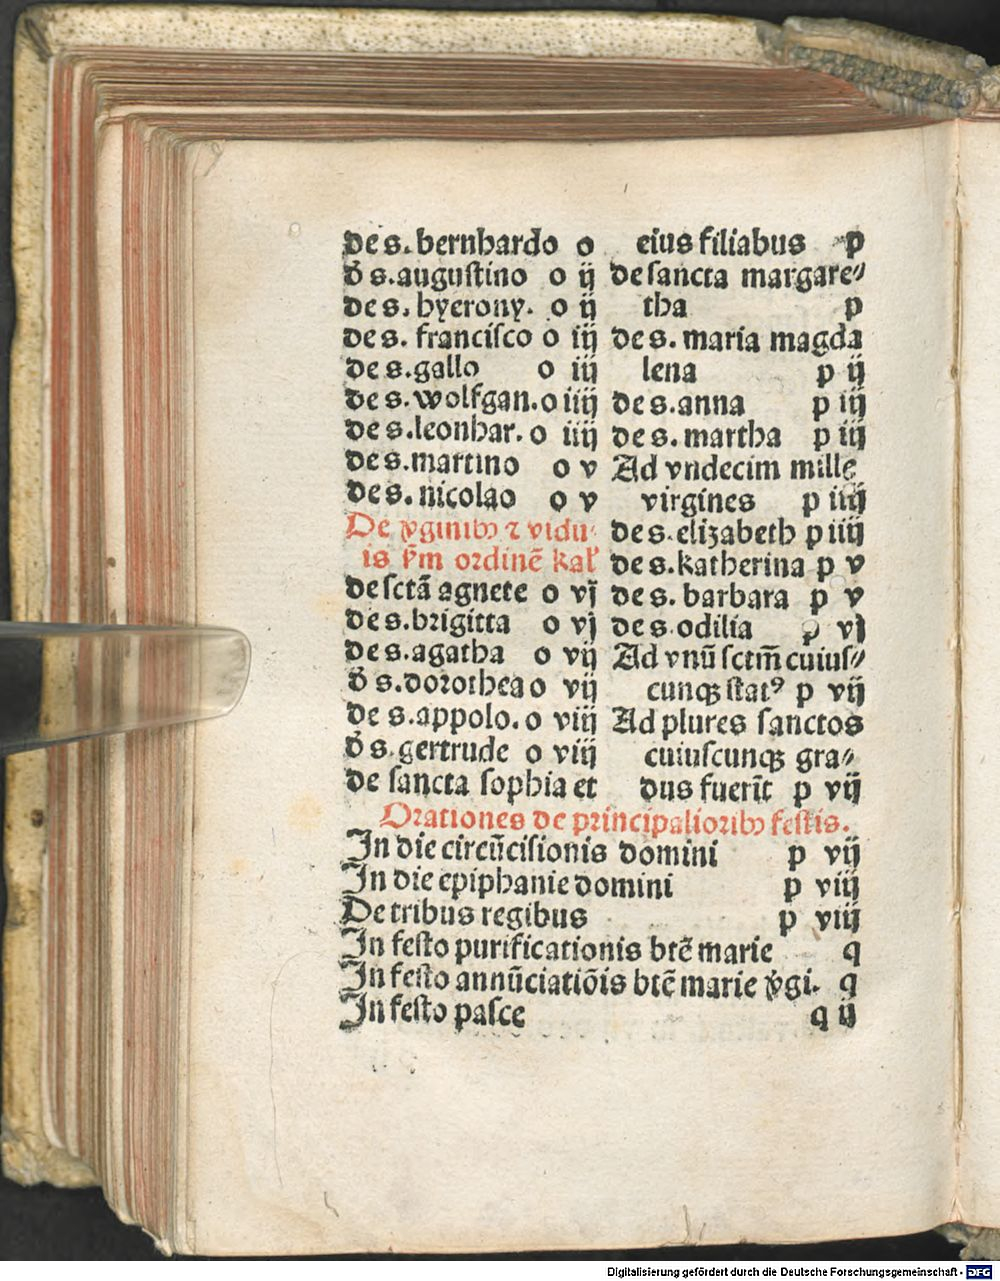 de s. bernhardo o
ꝺ̄ s. augustino o ij
de s. hyerony. o ij
de s. francisco o iij
de s. gallo o iij
de s. wolfgan. o iiij
de s. leonhar. o iiij
de s. martino o v
de s. nicolao o v
De ꝟginibꝫ ⁊ vidu
is ẜm ordinē kaꝉ
de sctā agnete o vj
de s. brigitta o vj
de s. agatha o vij
ꝺ̄ s. dorothea o vij
de s. appolo. o viij
ꝺ̄ s. gertrude o viij
de sancta sophia et
eius filiabus p
de sancta margare⸗
tha p
de s. maria magda
lena p ij
de s. anna p iij
de s. martha p iij
Ad vndecim mille
virgines p iiij
de s. elizabeth p iiij
de s. katherina p v
de s. barbara p v
de s. odilia p vj
Ad vnū sctm̄ cuius⸗
cunqꝫ statꝰ p vij
Ad plures sanctos
cuiuscunqꝫ gra⸗
dus fuerīt p vij
Orationes de principalioribꝫ festis.
In die circūcisionis domini p vij
In die epiphanie domini p viij
De tribus regibus p viij
In festo purificationis btē marie q
In festo annūciatiōis btē marie ꝟgi. q
In festo pasce q ij
Digitalisierung gefördert durch die Deutsche Forschungsgemeinschaft - DFG